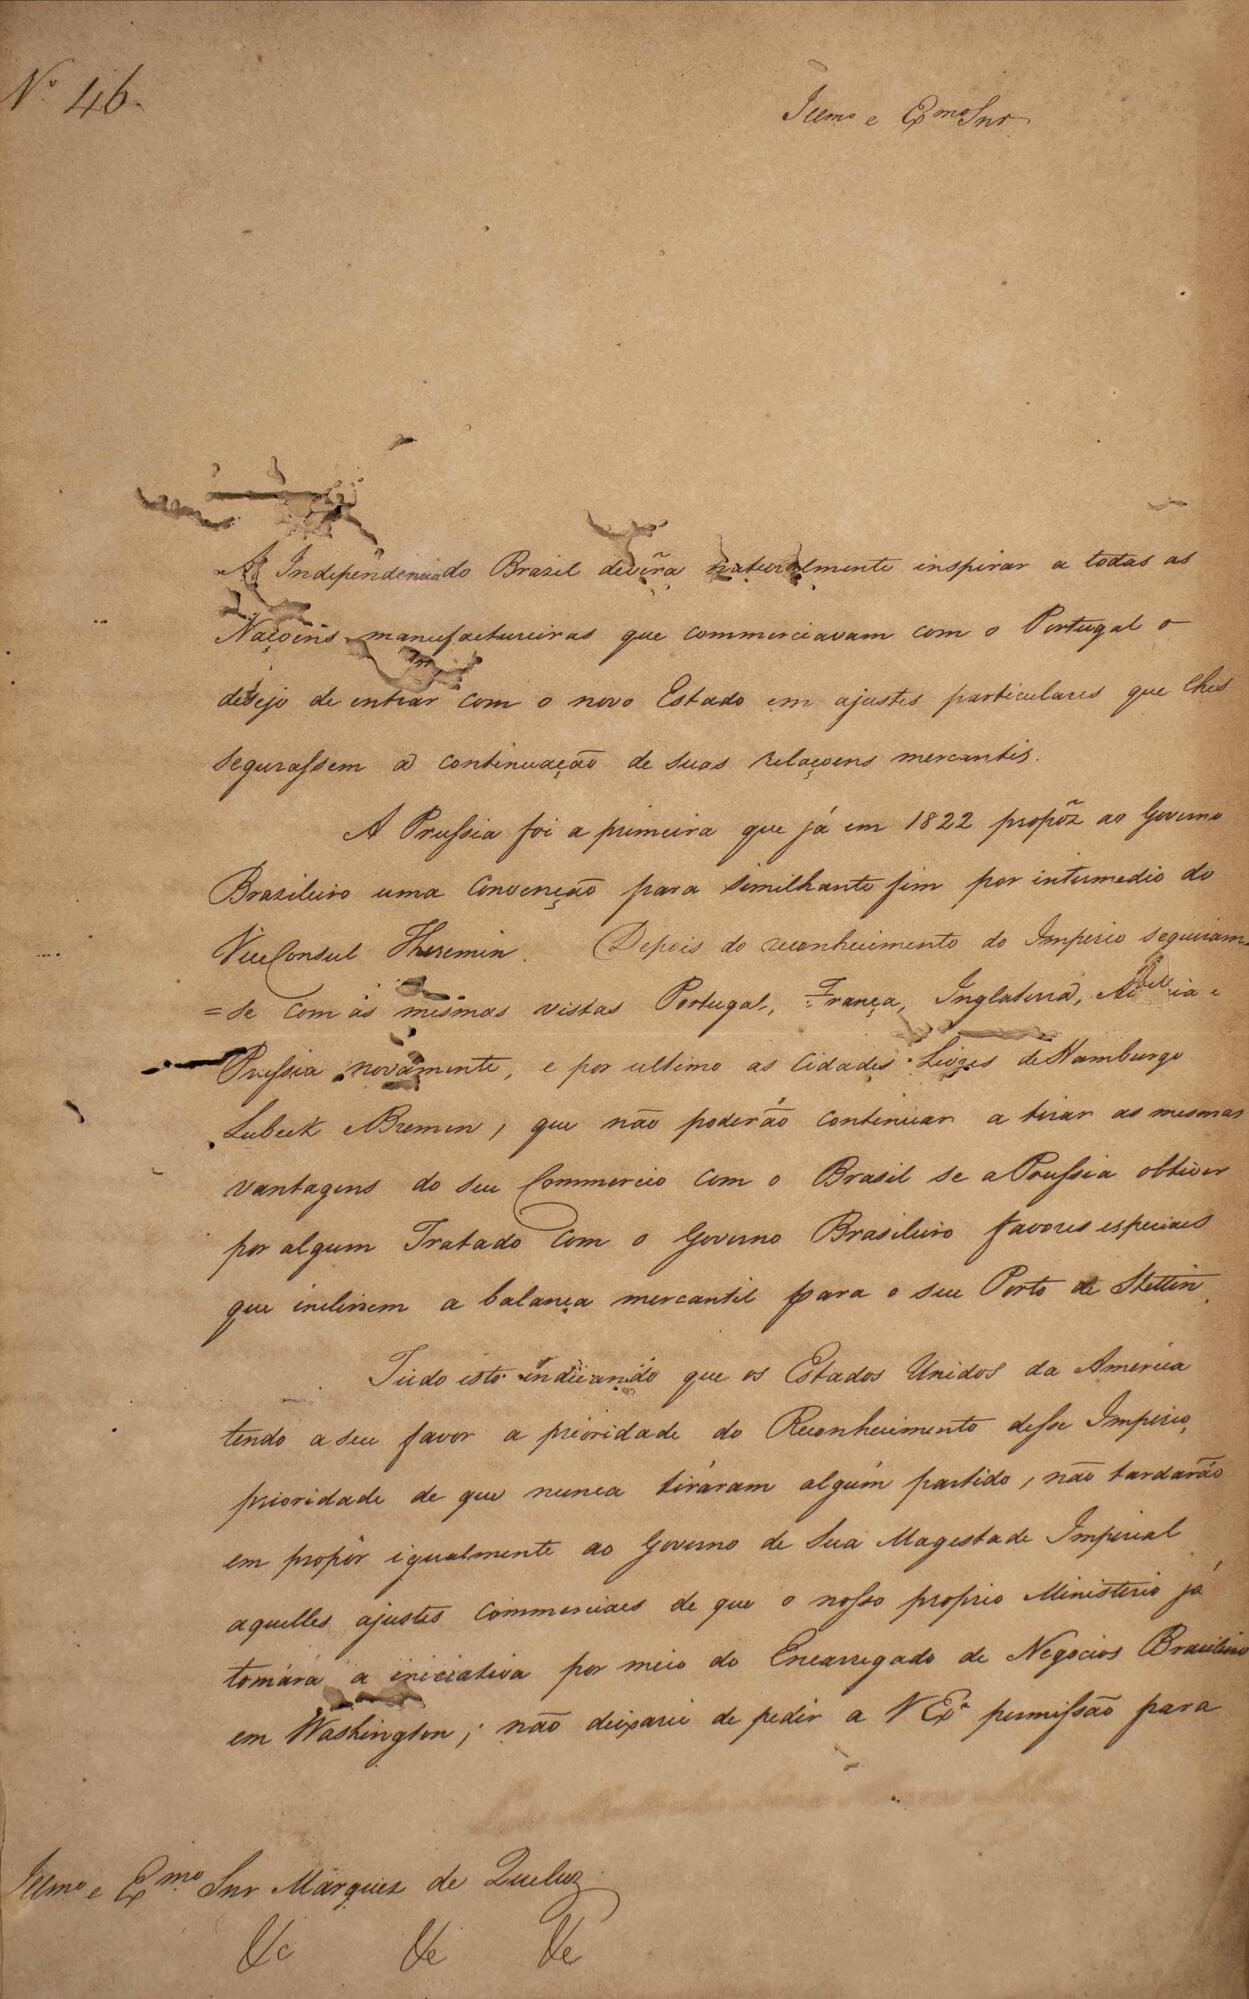 Nº 46.
Illmo e Exmo Snr
A Independencia do Brazil devêra naturalmente inspirar a todas as
Naçoens manufactureiras que commerciavam com o Portugal o
desejo de entrar com o novo Estado em ajustes particulares que lhes
segurassem a continuação de suas relaçoens mercantis.
A Prussia foi a primeira que já em 1822 propôz ao Governo
Brazileiro uma Convenção para similhante fim por intermedio do
Vice Consul Theremin. Depois do reconhecimento do Imperio seguiram
=se com as mesmas vistas Portugal, França, Inglaterra, e
Prussia novamente, e por ultimo as Cidades Livres de Hamburgo
Lubeck e Bremen, que não poderão continuar a tirar as mesmas
vantagens do seu Commercio com o Brasil se a Prussia obtiver
por algum Tratado com o Governo Brasileiro favores especiaes
que inclinem a balança mercantil para o seu Porto de Stettin.
Tudo isto indicando que os Estados Unidos da America
tendo a seu favor a prioridade do Reconhecimento desse Imperio,
prioridade de que nunca tiráram algum partido, não tardarão
em propôr igualmente ao Governo de Sua Magestade Imperial
aquelles ajustes Commerciaes de que o nosso proprio Ministerio já
tomára a iniciativa por meio do Encarregado de Negocios Brasileiro
em Washington; não deixarei de pedir a V Exª permissão para
Illmo e Exmo Snr Marquez de Queluz
&c &c &c